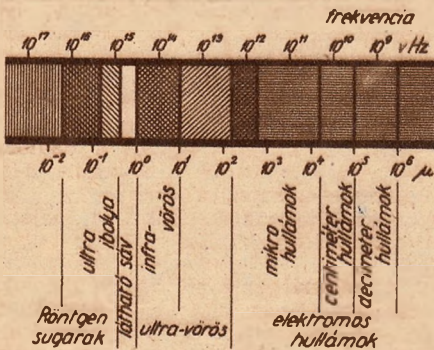 frekvencia
10¹⁷ 10¹⁶ 10¹⁵ 10¹⁴ 10¹³ 10¹² 10¹¹ 10¹⁰ 10⁹ νHz
10⁻² 10⁻¹ 10⁰ 10¹ 10² 10³ 10⁴ 10⁵ 10⁶ μ
ultra
ibolya
látható sáv
infra-
vörös
mikro
hullámok
centiméter
hullámok
deciméter
hullámok
Röntgen
sugarak
ultra-vörös
elektromos
hullámok